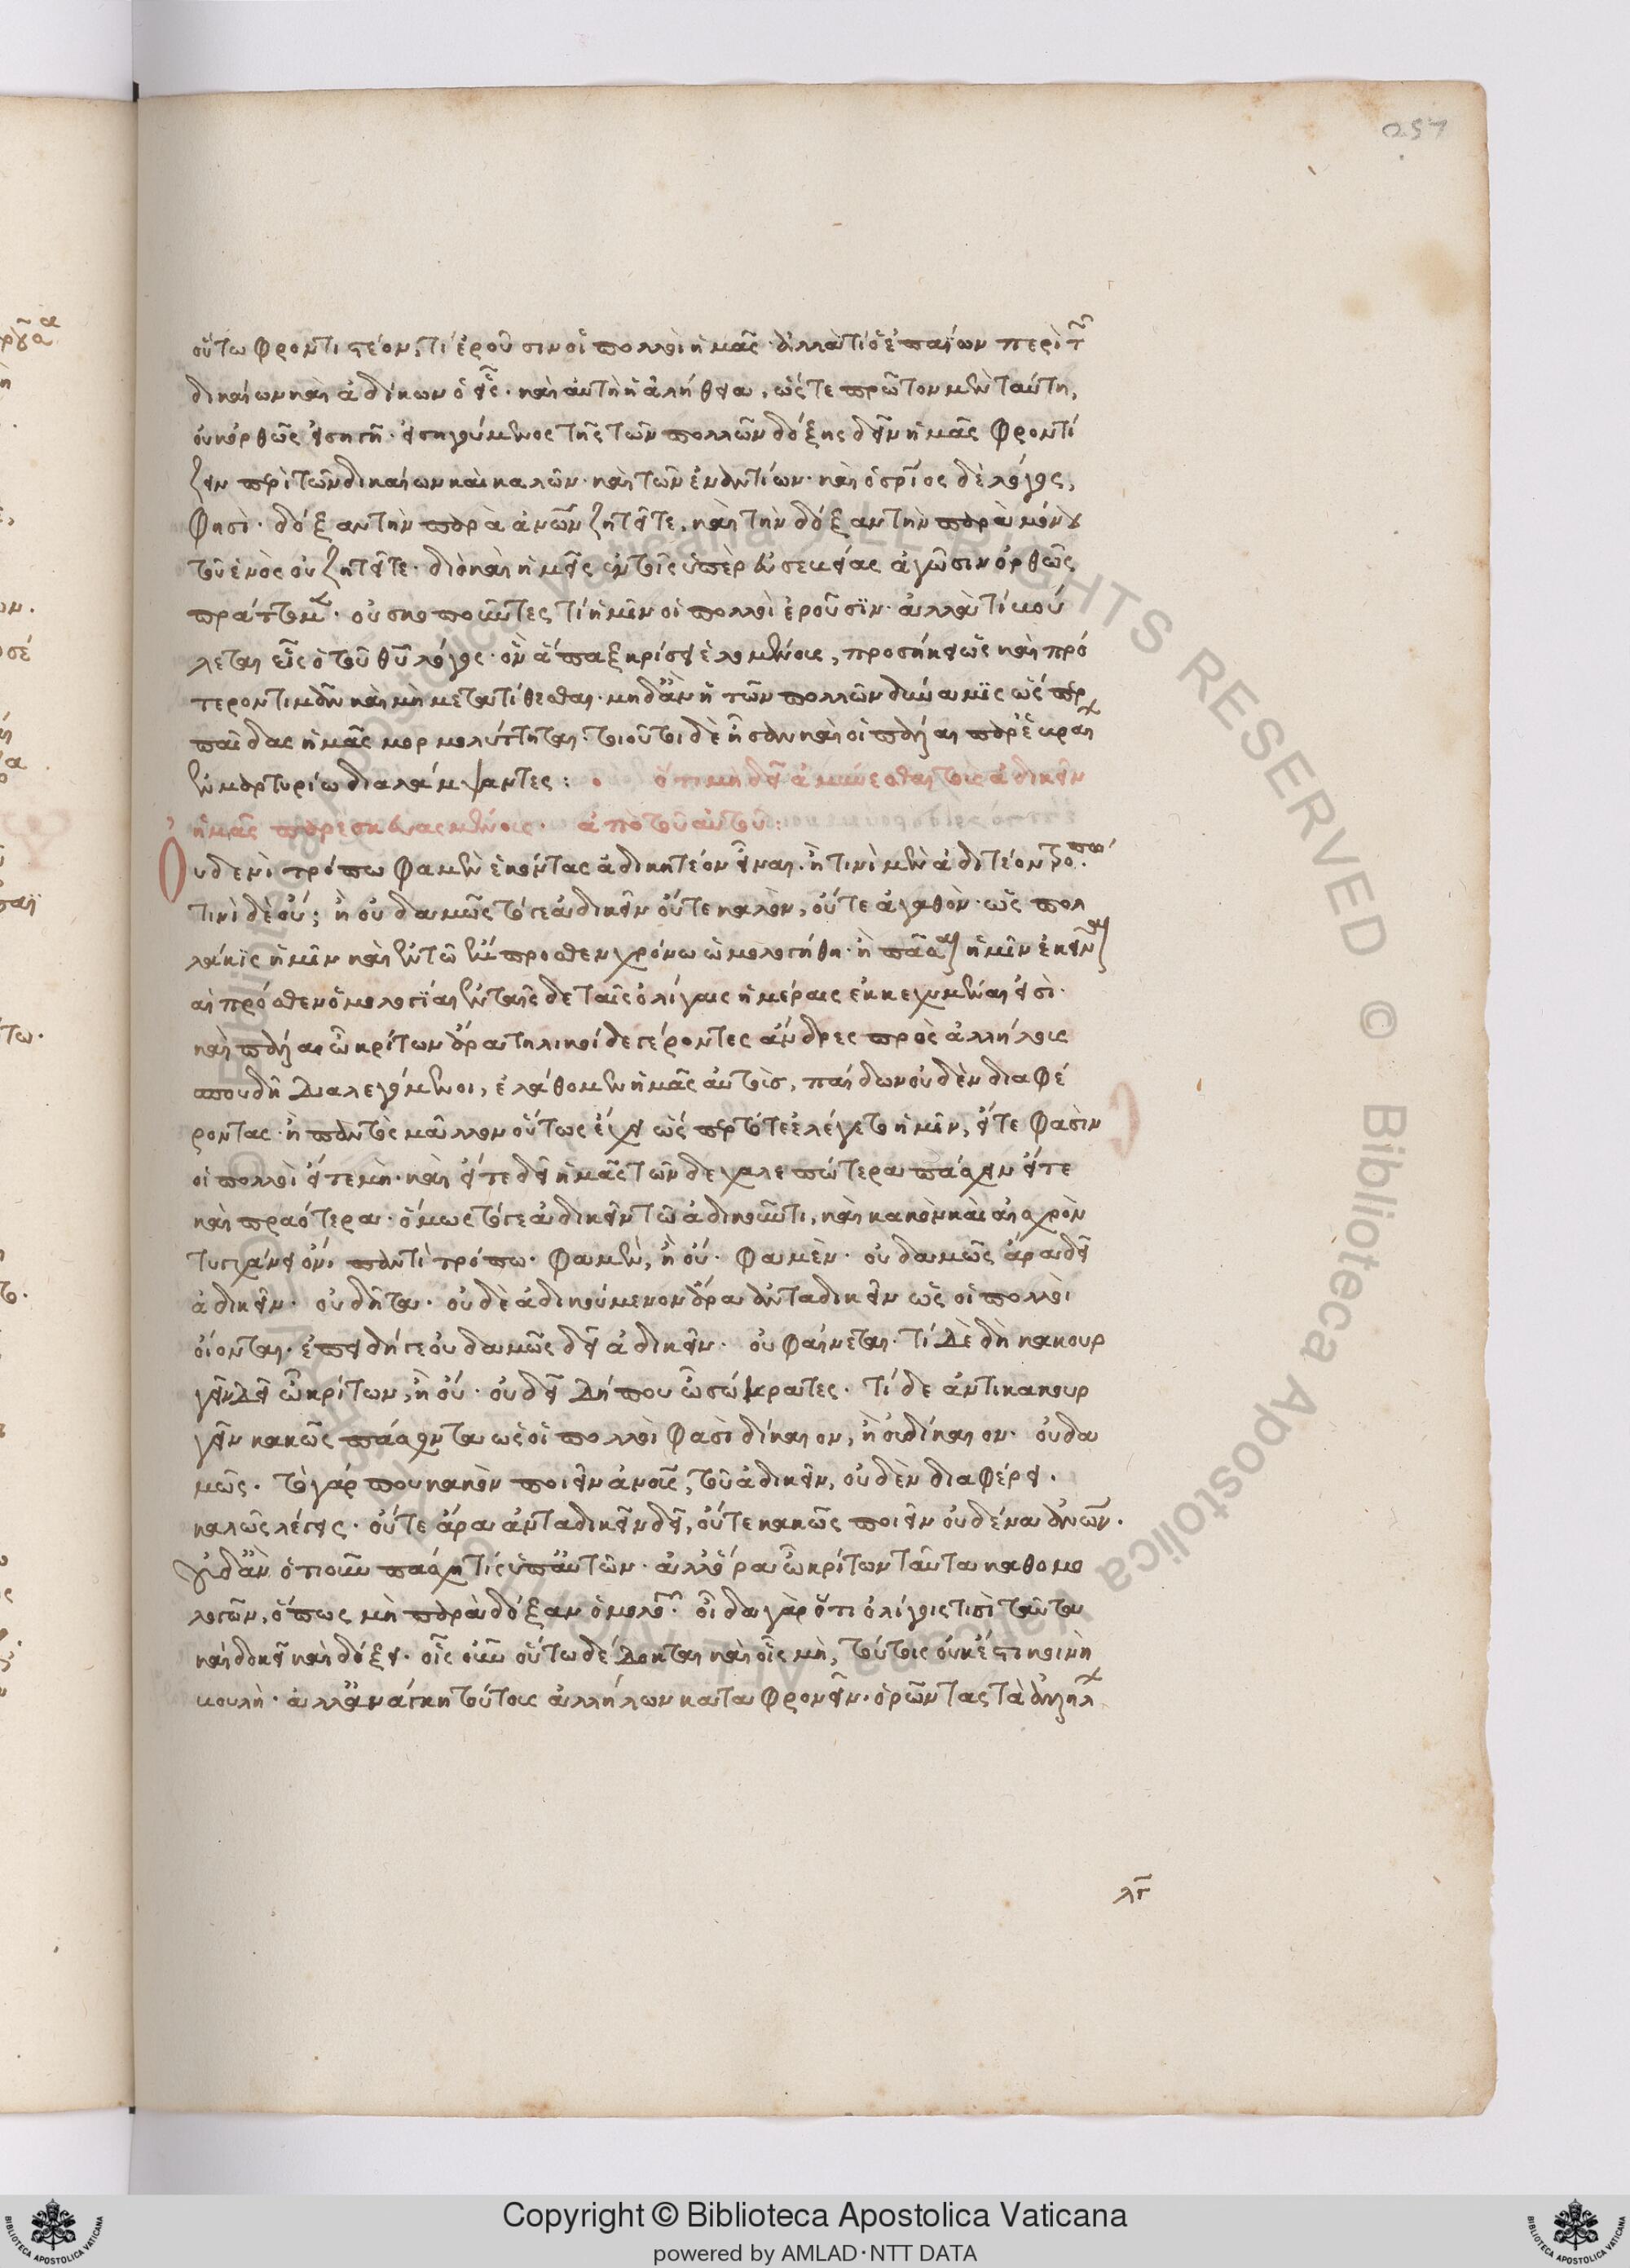 257
οὕτω φροντιστέον, τί ἐροῦσιν οἱ πολλοὶ ἡμᾶς· ἀλλὰ τί ὁ ἐπαΐων περὶ τῶν
δικαίων καὶ ἀδίκων ὁ εἷς· καὶ αὐτὴ ἡ ἀλήθεια, ὥστε πρῶτον μὲν ταύτη,
οὐκ ὀρθῶς εἰσηγῆ· εἰσηγούμενος τῆς τῶν πολλῶν δόξης δεῖν ἡμᾶς φροντί
ζειν περὶ τῶν δικαίων καὶ καλῶν· καὶ τῶν ἐναντίων· καὶ ὁ κύριος δὲ λόγος,
φησὶ· δόξαν τὴν παρὰ ἀνων ζητεῖτε, καὶ τὴν δόξαν τὴν παρὰ μόνου
τοῦ ἑνὸς οὐ ζητεῖτε· διὸ καὶ ἡμεῖς ἐν τοῖς ὑπὲρ εὐσεβείας ἀγῶσιν ὀρθῶς
πράττομεν· οὐ σκοποῦντες τί ἡμῖν οἱ πολλοὶ ἐροῦσϊν· ἀλλὰ τί βού
λεται εἷς ὁ τοῦ θυ λόγος· ὃν ἅπαξ κρίσει ἑλομένοις, προσήκει ὡς καὶ πρό
τερον τιμᾶν καὶ μὴ μετατίθεσθαι· μηδ' ἂν ἡ τῶν πολλῶν δύναμϊς ὥσπερ
παῖδας ἡμᾶς μορμολύττηται· τοιοῦτοι δὲ ἦσαν καὶ οἱ πάλαι παρ' ἑβραίοις
ἐν μαρτυρίω διαλάμψαντες: ὅτι μὴ δεῖ ἀμύνεσθαι τοῖς ἀδικεῖν
ἡμᾶς παρεσκευασμένοις· ἀπὸ τοῦ αὐτοῦ:
Οὐδενὶ τρόπω φαμὲν ἑκόντας ἀδικητέον εἶναι· ἢ τινὶ μὲν ἀδικητέον τρόπω·
τινὶ δὲ οὔ; ἢ οὐδαμῶς τό γε ἀδικεῖν οὔτε καλὸν, οὔτε ἀγαθὸν· ὡς πολ
λάκϊς ἡμῖν καὶ ἐν τῶ ἔμπροσθεν χρόνω ὡμολογήθη· ἢ πᾶσαι ἡμῖν ἐκεῖναι
αἱ πρόσθεν ὁμολογίαι ἐν ταῖς δε ταῖς ὀλίγαις ἡμέραις ἐκκεχυμέναι εἰσὶ·
καὶ πάλαι ὦ κρίτων ἄρα τηλικοίδε γέροντες ἄνδρες πρὸς ἀλλήλοις
σπουδῆ διαλεγόμενοι, ἐλάθομεν ἡμᾶς αὐτοὺς, παίδων οὐδὲν διαφέ
ροντας· ἢ παντὸς μᾶλλον οὕτως ἔχει ὥσπερ τότε ἐλέγετο ἡμῖν, εἴτε φασὶν
οἱ πολλοὶ εἴτε μὴ· καὶ εἴτε δεῖ ἡμᾶς τῶν δε χαλεπώτερα πάσχειν εἴτε
καὶ πραότερα· ὅμως τό γε ἀδικεῖν τῶ ἀδικοῦντι, καὶ κακὸν καὶ αἰσχρὸν
τυγχάνει ὂν παντὶ τρόπω· φαμὲν, ἢ οὔ· φαμὲν· οὐδαμῶς ἄρα δεῖ
ἀδικεῖν· οὐ δῆτα· οὐδὲ ἀδικούμενον ἄρα ἀνταδικεῖν ὡς οἱ πολλοὶ
οἴονται· ἐπειδή γε οὐδαμῶς δεῖ ἀδικεῖν· οὐ φαίνεται· τί δὲ δὴ κακουρ
γεῖν δεῖ ὦ κρίτων, ἢ οὔ· οὐ δεῖ δήπου ὦ σώκρατες· τί δε ἀντικακουρ
γεῖν κακῶς πάσχοντα ὡς οἱ πολλοὶ φασὶ δίκαιον, ἢ οὐ δίκαιον· οὐδα
μῶς· τὸ γάρ που κακὸν ποιεῖν ἀνους, τοῦ ἀδικεῖν, οὐδὲν διαφέρει·
καλῶς λέγεις· οὔτε ἄρα ἀνταδικεῖν δεῖ, οὔτε κακῶς ποιεῖν οὐδένα ἀνων·
οὐδ' ἂν ὁτιοῦν πάσχη τίς ὑπ' αὐτῶν· ἀλλ' ὅρα ὦ κρίτων ταῦτα καθομο
λογῶν, ὅπως μὴ παρὰ δόξαν ὁμολογῆς· οἶδα γὰρ ὅτι ὀλίγοις τισὶ ταῦτα
καὶ δοκεῖ καὶ δόξει· οἷς οὖν οὕτω δέδοκται καὶ οἷς μὴ, τούτοις οὐκ ἔστι κοινὴ
βουλὴ· ἀλλ' ἀνάγκη τούτοις ἀλλήλων καταφρονεῖν· ὁρῶντας τὰ ἀλλήλων